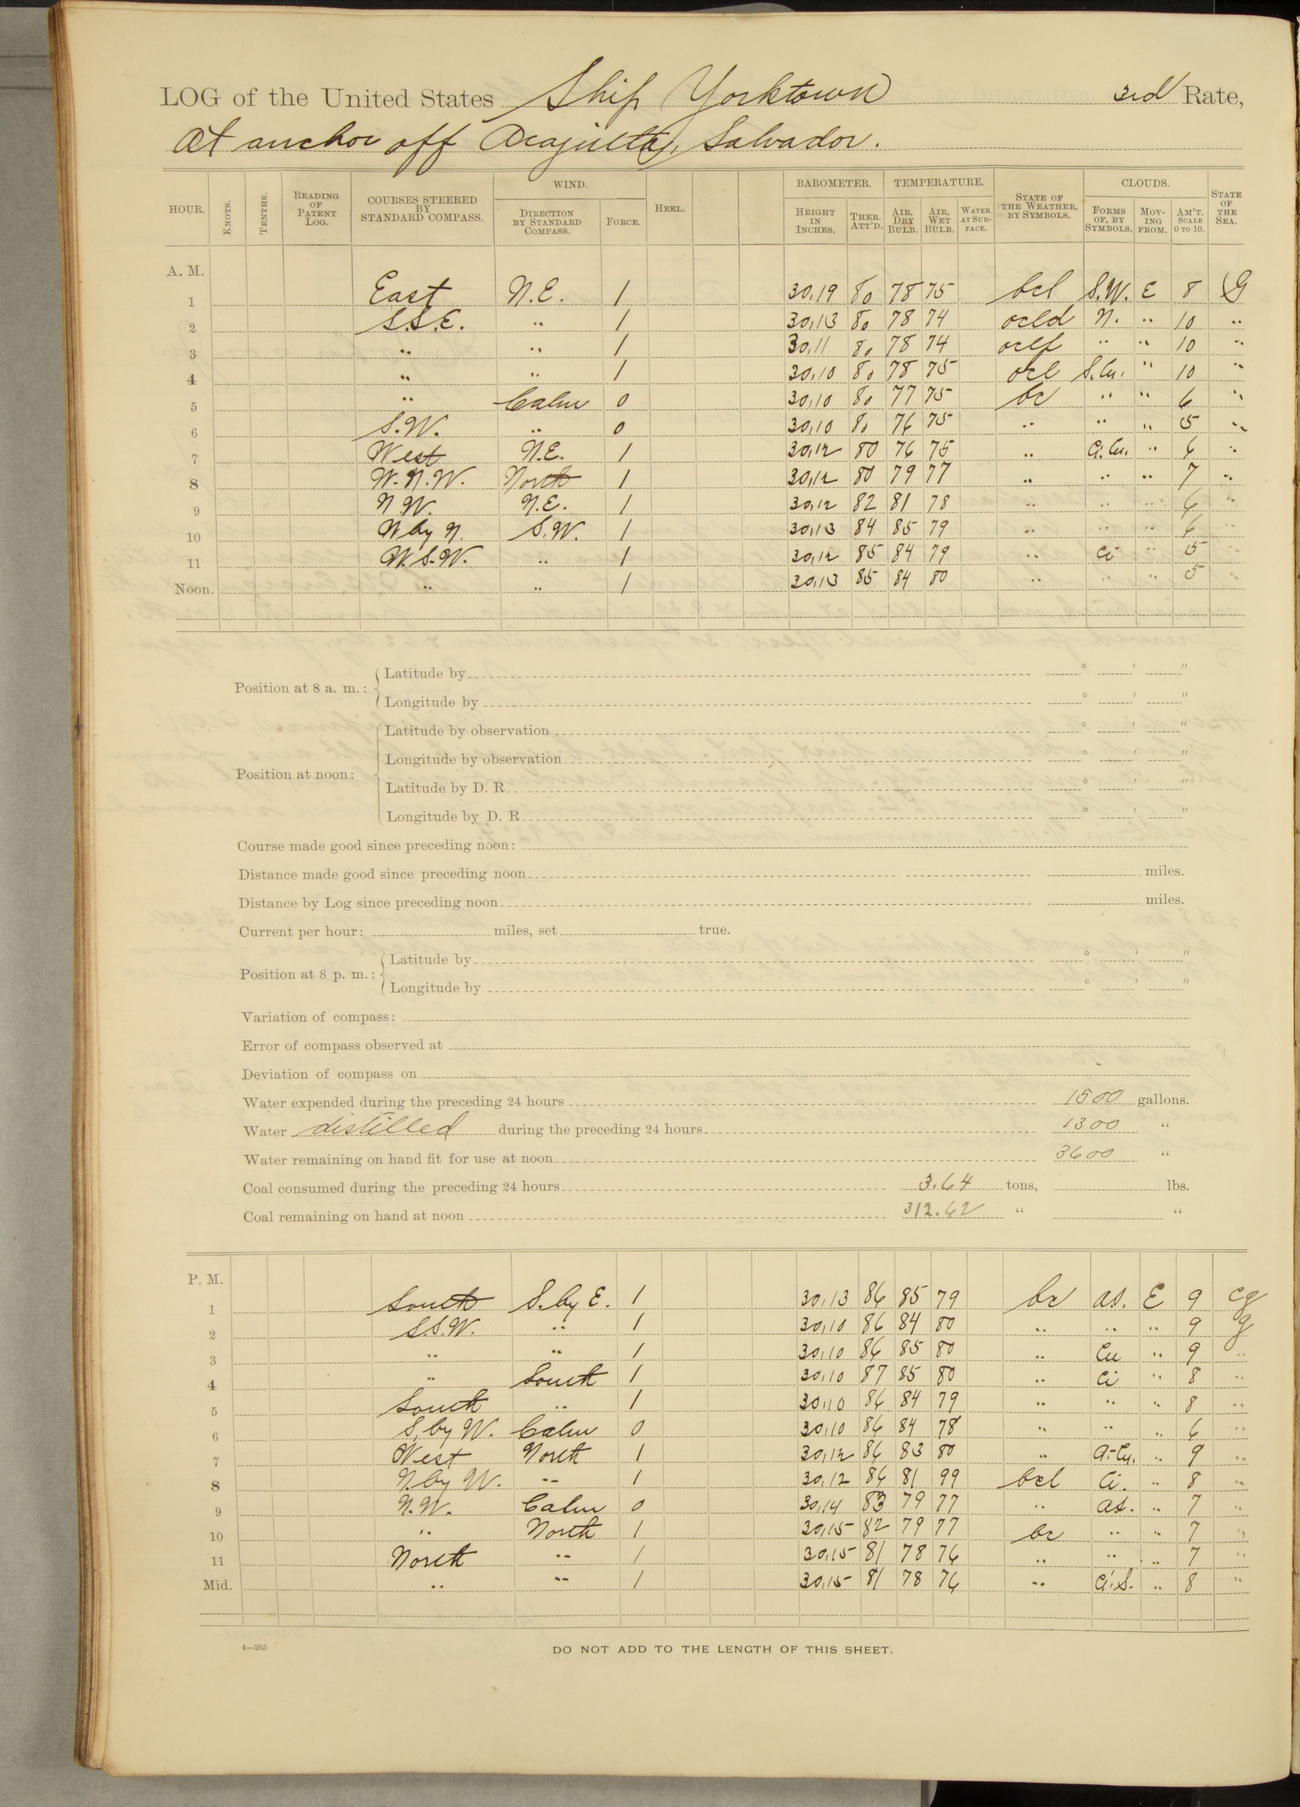 LOG of the United States Ship Yorktown 3rd Rate,
At anchor off Acajutla, Salvador.
HOUR. KNOTS. TENTHS. READING OF PATENT LOG. COURSES STEERED BY STANDARD COMPASS. WIND. DIRECTION BY STANDARD COMPASS. FORCE. HEEL. BAROMETER. HEIGHT IN INCHES. THER. ATT'D. TEMPERATURE. AIR, DRY BULB. AIR, WET BULB. WATER AT SURFACE. STATE OF THE WEATHER, BY SYMBOLS. CLOUDS. FORMS OF, BY SYMBOLS. MOVING FROM. AM'T. SCALE 0 TO 10. STATE OF THE SEA.
A. M.
1 East N.E. 1 30.19 80 78 75 bcl S.W. E 8 G
2 S.S.E. " 1 30.13 80 78 74 ocld N. " 10 "
3 " " 1 30.11 80 78 74 " " 10 "
4 " " 1 30.10 80 78 75 ocl S.Cu. " 10 "
5 " Calm 0 30.10 80 77 75 bc " " 6 "
6 S.W. " 0 30.10 80 76 75 " " " 5 "
7 West N.E. 1 30.12 80 76 75 " a.Cu. " 6 "
8 W.N.W. North 1 30.12 80 79 77 " " " 7 "
9 N.W. N.E. 1 30.12 82 81 78 " " " 6 "
10 N by N. S.W. 1 30.13 84 85 79 " " " 6 "
11 W.S.W. " 1 30.12 85 84 79 " Ci " 5 "
Noon. " " 1 30.13 85 84 80 " " " 5 "
Position at 8 a. m.: Latitude by ° ' "
Longitude by ° ' "
Position at noon: Latitude by observation ° ' "
Longitude by observation ° ' "
Latitude by D. R. ° ' "
Longitude by D. R. ° ' "
Course made good since preceding noon:
Distance made good since preceding noon miles.
Distance by Log since preceding noon miles.
Current per hour: miles, set true.
Position at 8 p. m.: Latitude by ° ' "
Longitude by ° ' "
Variation of compass:
Error of compass observed at
Deviation of compass on
Water expended during the preceding 24 hours 1500 gallons.
Water distilled during the preceding 24 hours 1300 "
Water remaining on hand fit for use at noon 3600 "
Coal consumed during the preceding 24 hours 3.64 tons, lbs.
Coal remaining on hand at noon 312.62 " "
P. M.
1 South S. by E. 1 30.13 86 85 79 bc as. E 9 cg
2 S.S.W. " 1 30.10 86 84 80 " " " 9 g
3 " " 1 30.10 86 85 80 " Cu " 9 "
4 " South 1 30.10 87 85 80 " Ci " 8 "
5 South " 1 30.10 86 84 79 " " " 8 "
6 S. by W. Calm 0 30.10 86 84 78 " " " 6 "
7 West North 1 30.12 86 83 80 " a-Cu. " 9 "
8 N. by W. " 1 30.12 86 81 99 bcl Ci. " 8 "
9 N.W. Calm 0 30.14 83 79 77 " as. " 7 "
10 " North 1 30.15 82 79 77 bc " " 7 "
11 North " 1 30.15 81 78 76 " " " 7 "
Mid. " " 1 30.15 81 78 76 " Ci.S. " 8 "
4—265
DO NOT ADD TO THE LENGTH OF THIS SHEET.